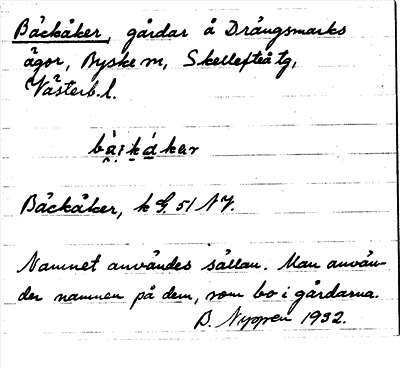 Bäckåker, gårdar å Drängsmarks
ägor, Byske sn, Skellefteå tg,
Västerb. l.
Bäckåker, k G. 51 NV.
Namnet användes sällan. Man använ-
der namnen på dem, som bo i gårdarna.
B. Nyppen 1932.